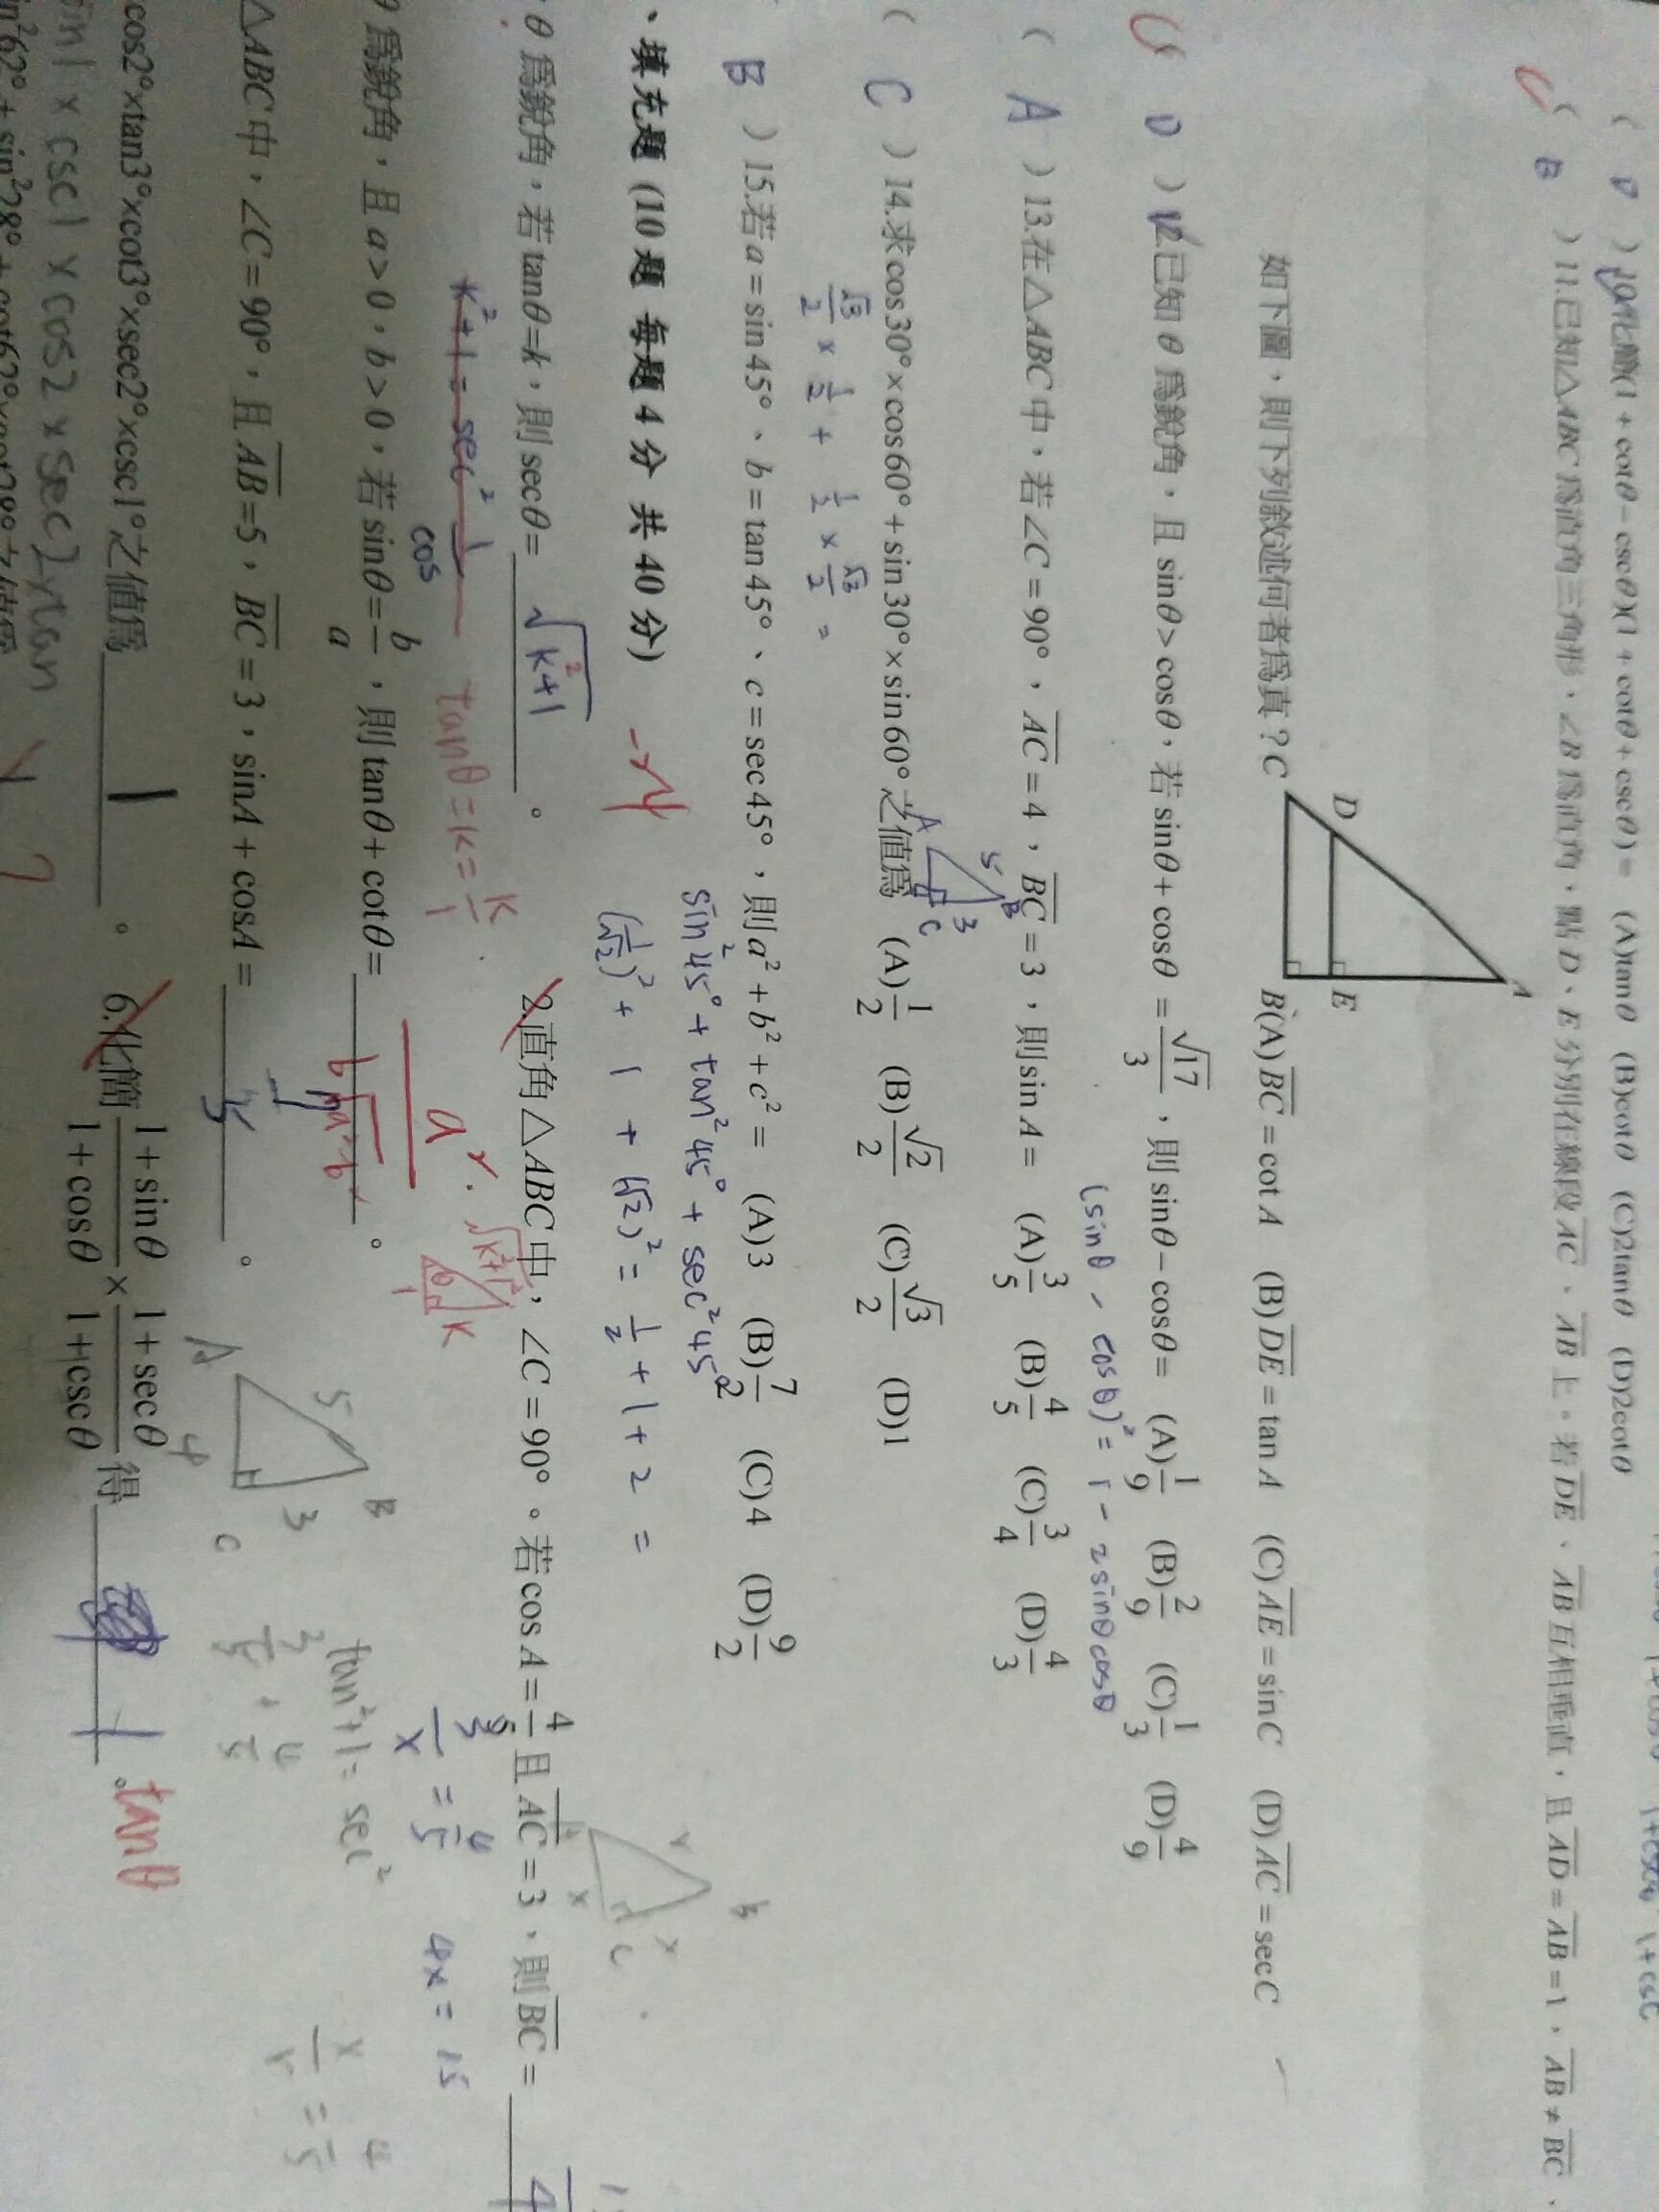 ( D ) 10.化簡(1+cotθ−cscθ)(1+cotθ+cscθ)= (A)tanθ (B)cotθ (C)2tanθ (D)2cotθ
( B ) 11.已知△ABC為直角三角形、∠B為直角,點D、E分別在線段AC、AB上。若DE、AB互相垂直,且AD=AB=1,AB≠BC,
如下圖,則下列敘述何者為真? (A)BC=cot A (B)DE=tan A (C)AE=sin C (D)AC=sec C
A
D
E
C
B
( D ) 12.已知θ為銳角,且sinθ>cosθ,若sinθ+cosθ=√17/3,則sinθ−cosθ= (A)1/9 (B)2/9 (C)1/3 (D)4/9
(sinθ - cosθ)² = 1 - 2sinθcosθ
( A ) 13.在△ABC中,若∠C=90°,AC=4,BC=3,則sin A= (A)3/5 (B)4/5 (C)3/4 (D)4/3
A 5 B 3 C
( C ) 14.求cos30°×cos60°+sin30°×sin60°之值為 (A)1/2 (B)√2/2 (C)√3/2 (D)1
√3/2 × 1/2 + 1/2 × √3/2 =
B ) 15.若a=sin45°、b=tan45°、c=sec45°,則a²+b²+c²= (A)3 (B)7/2 (C)4 (D)9/2
sin²45° + tan²45° + sec²45°
(1/√2)² + 1 + (√2)² = 1/2 + 1 + 2 =
、填充題 (10題 每題4分 共40分)
θ為銳角,若tanθ=k,則secθ= √k²+1 。
2.直角△ABC中,∠C=90°。若cos A=4/5且AC=3,則BC=
k²+1 = sec²
tanθ = k = k/1
√k²+1² k 1 θ
3/x = 4/5 4x = 15
θ為銳角,且a>0,b>0,若sinθ=b/a,則tanθ+cotθ= 。
cos
tan²+1 = sec²
△ABC中,∠C=90°,且AB=5,BC=3,sinA+cosA= 。
A 5 B 4 3 C
3/5 + 4/5
x = 4/5
cos2°×tan3°×cot3°×sec2°×csc1°之值為 1 。
6.化簡 (1+sinθ)/(1+cosθ) × (1+secθ)/(1+cscθ) 得 。 tanθ
sin1 × csc1 × cos2 × sec2 × tan